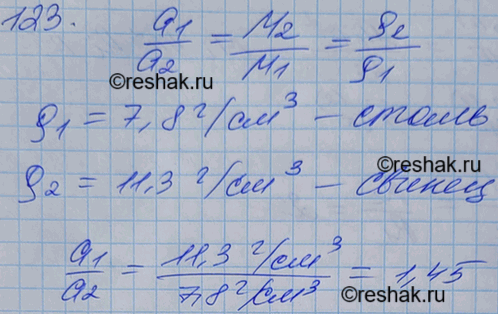 123. a₁/a₂ = M₂/M₁ = ρ₂/ρ₁
©reshak.ru
ρ₁ = 7,8 г/см³ – сталь
©reshak.ru
ρ₂ = 11,3 г/см³ – свинец
a₁/a₂ = 11,3 г/см³ / 7,8 г/см³ = 1,45
©reshak.ru